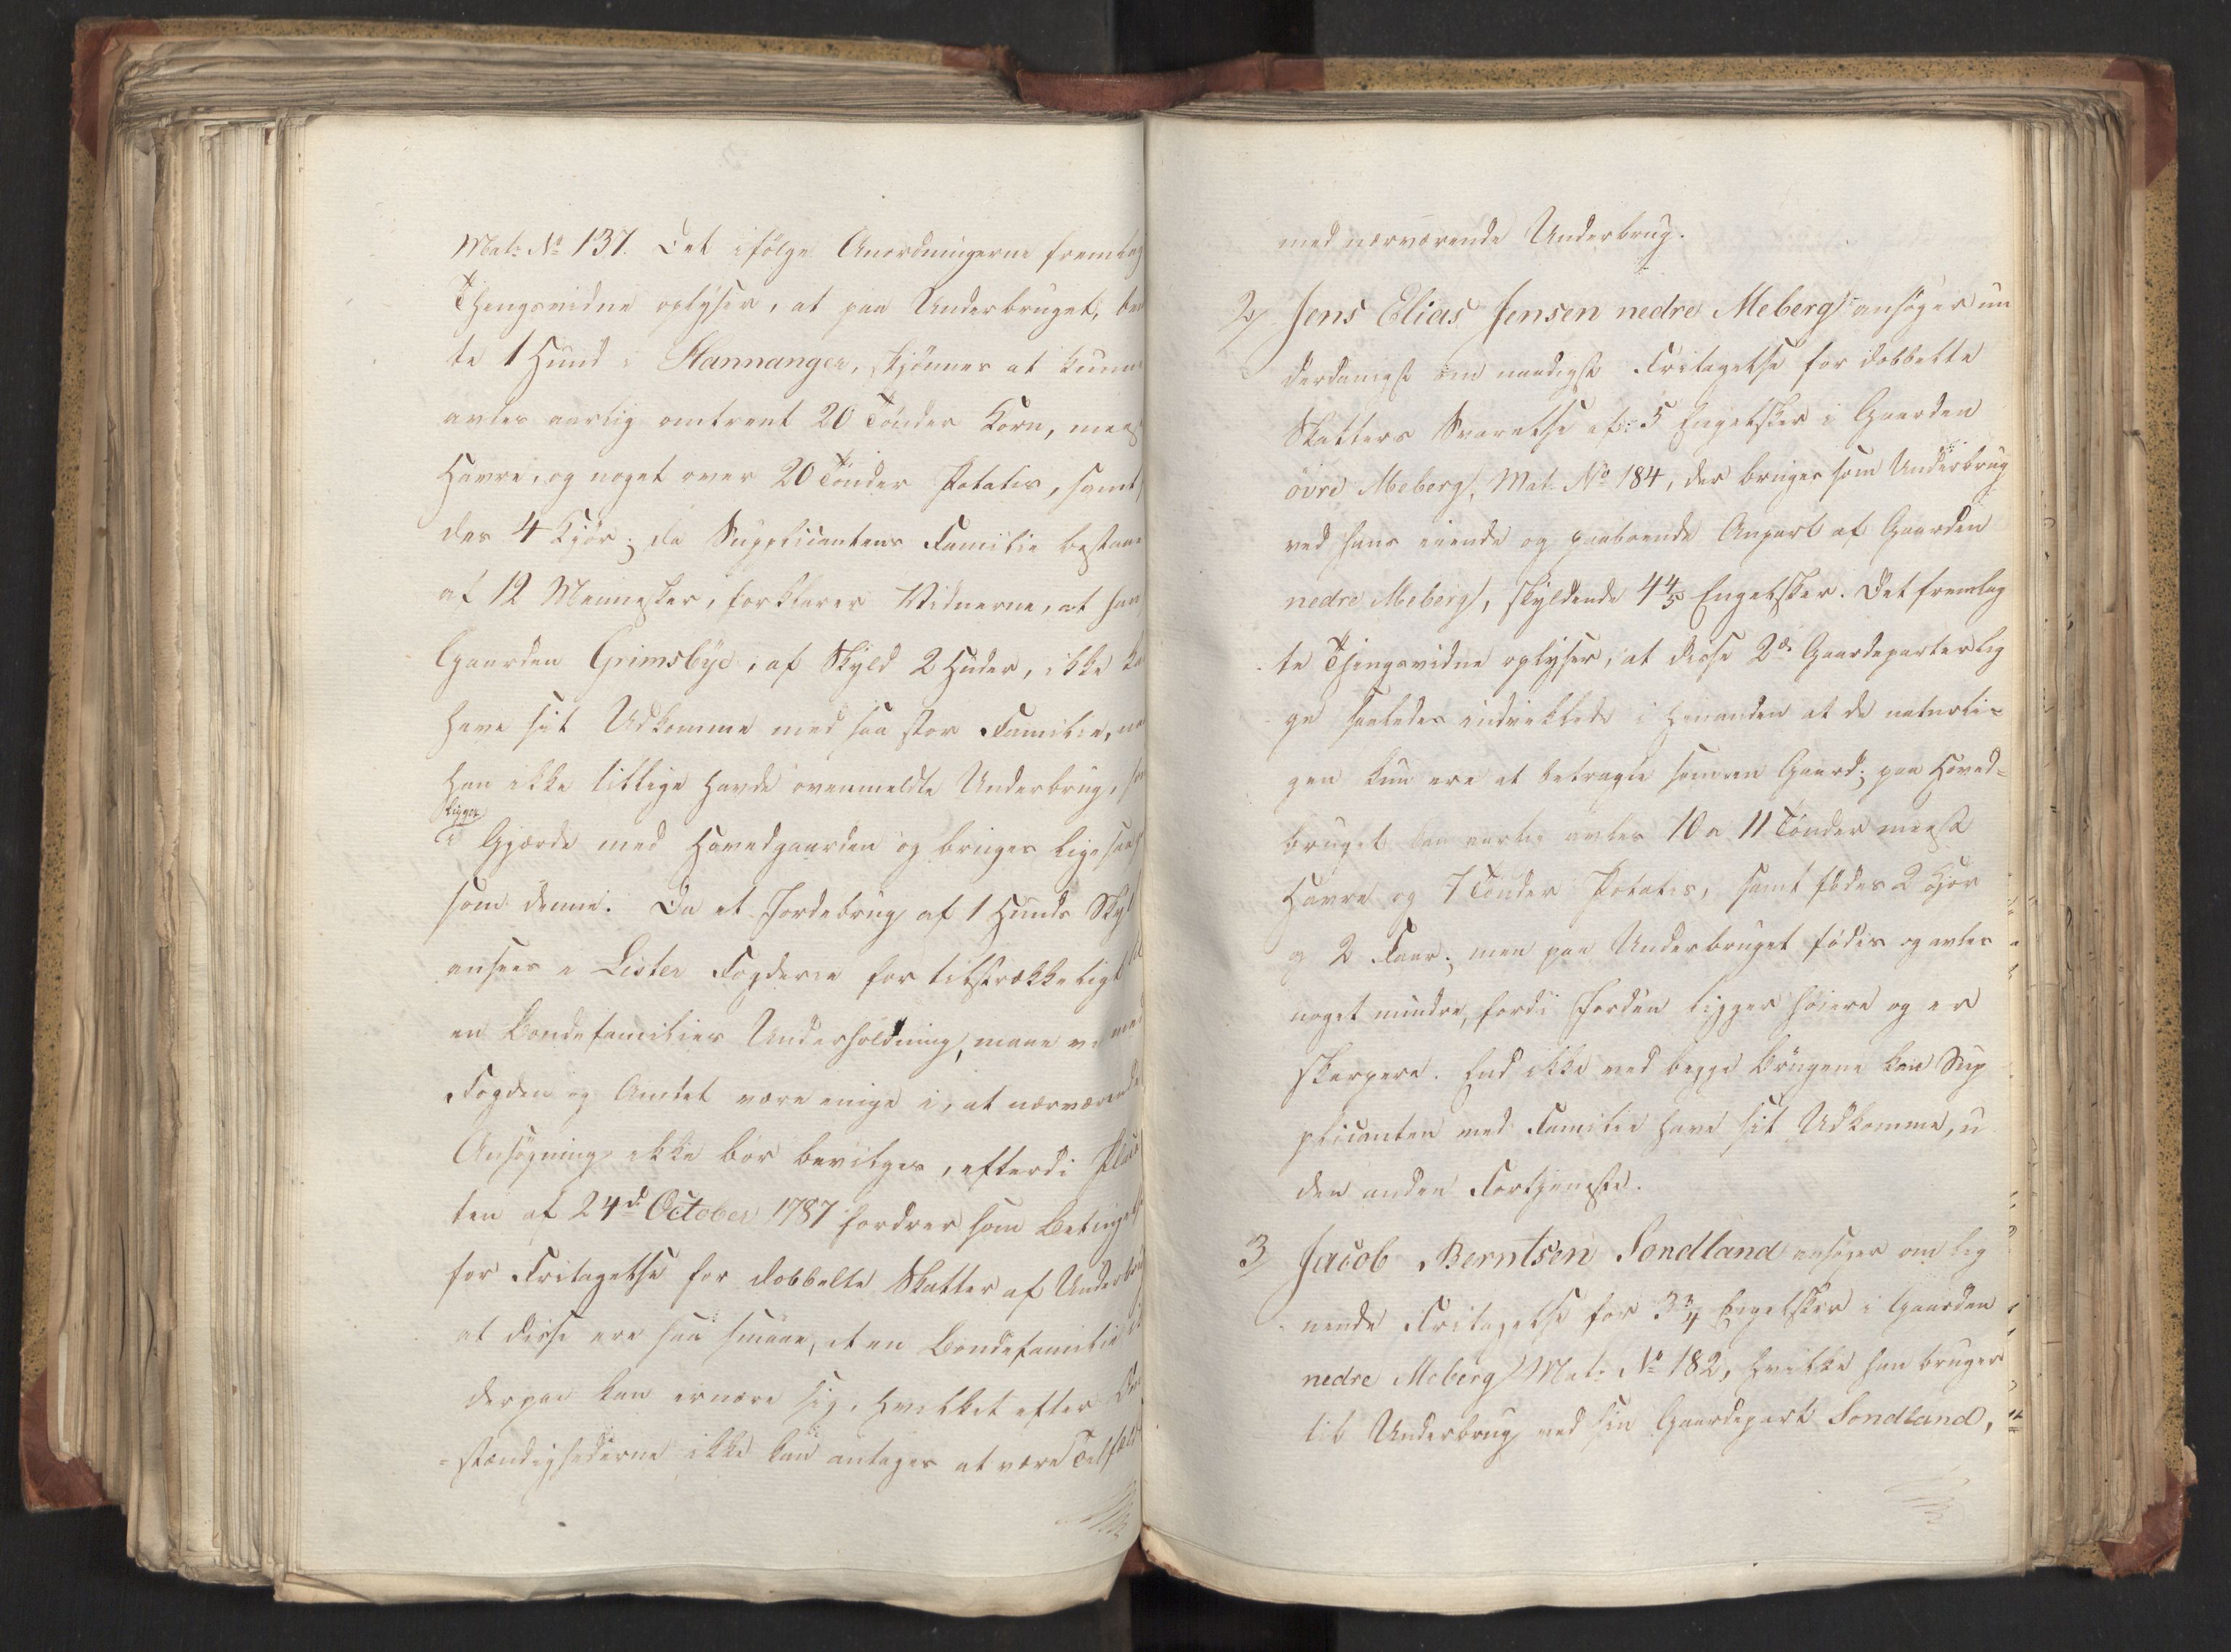 Mat: No 137. Det ifølge Anordningerne fremlag
Thingsvidne oplyser, at paa Underbruget, be
te 1 Hund i Hannanger, skjønnes at kunne
avles aarlig omtrent 20 Tönder Korn, meest
Havre, og noget over 20 Tönder Potates, samt
des 4 Kjör; da Supplicantens Familie bestaae
af 12 Mennesker, forklarer Vidnerne, at han
Gaarden Grimsbye, af Skyld 2 Huder, ikke ka
have sit Udkomme med saa stor Familie, na
han ikke tillige havde ovenmeldte Underbrug, som
ligger
i Gjærde med Hovedgaarden og bruges ligesaa
som denne. Da et Jordebrug af 1 Hunds Skyld
ansees i Lister Fogderie for tilstrækkeligt til
en Bondefamilies Underholdning, maae vi med
Fogden og Amtet være enige i, at nærværende
Ansøgning ikke bør bevilges, efterdi Placa
ten af 24de October 1787 fordrer som Betingelse
for Fritagelse for dobbelte Skatter af Underbrug
at disse ere saa smaae, at en Bondefamilie ik
derpaa kan ernære sig, hvilket efter Om
-stændighederne ikke kan antages at være Tilfæld
med nærværende Underbrug.
2, Jens Elias Jensen nedre Meberg ansøger un
derdanigst om naadigst Fritagelse for dobbelte
Skatters Svarelse af 5 Engelsker i Gaarden
övre Meberg, Mat. No 184, der bruges som Underbrug
ved hans eiende og paaboende Anpart af Gaarden
nedre Meberg, skyldende 4 4/5 Engelsker. Det fremlag
te Thingsvidne oplyser, at disse 2de Gaardeparter lig
ge saaledes indviklede i hinanden at de naturli-
gen kun ere at betragte som en Gaard; paa Hoved-
bruget kan aarlig avles 10 a 11 Tönder meest
Havre og 7 Tönder Potates, samt födes 2 Kjör
og 2 Faar; men paa Underbruget födes og avles
noget mindre, fordi Jorden ligger høiere og er
skarpere. End ikke ved begge Brugene kan Sup
plicanten med Familie have sit Udkomme, u
den anden Fortjeneste.
3, Jacob Berntsen Sondland ansøger om lig
nende Fritagelse for 3 3/4 Engelsker i Gaarden
nedre Meberg Mat: No 182, hvilke han bruger
til Underbrug ved sin Gaardepart Sondland,